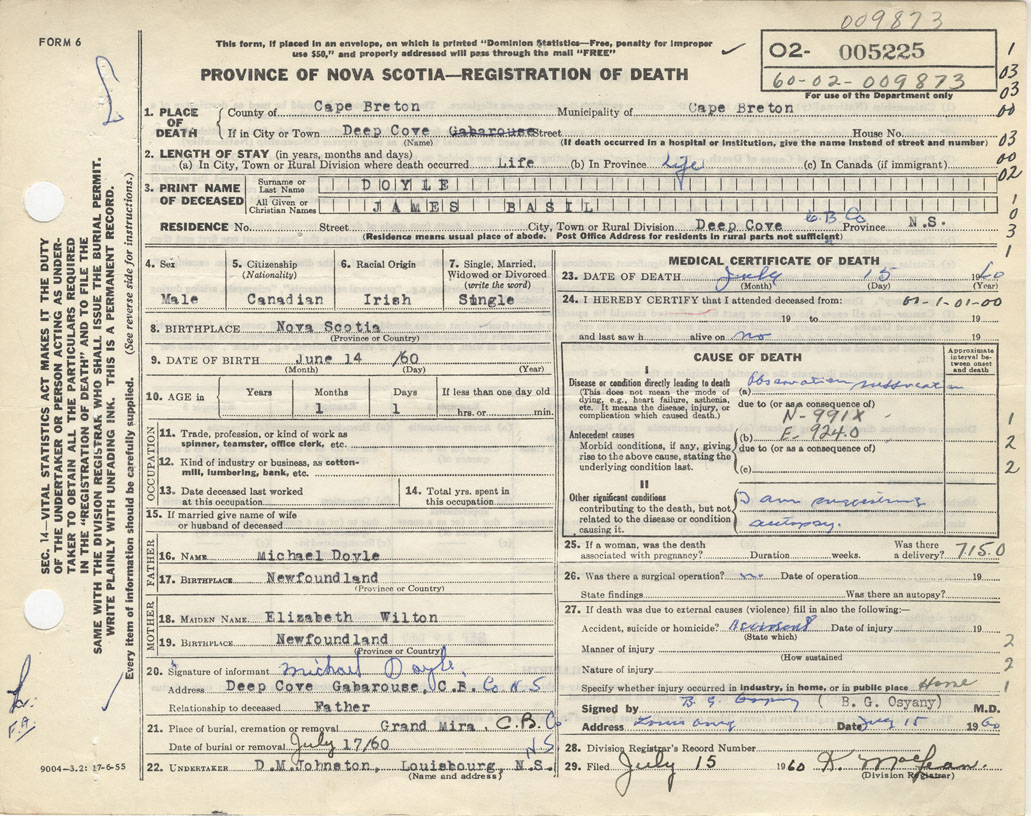 009873
FORM 6
This form, if placed in an envelope, on which is printed "Dominion Statistics—Free, penalty for improper
use $50," and properly addressed will pass through the mail "FREE"
02- 005225
60-02-009873
For use of the Department only
PROVINCE OF NOVA SCOTIA—REGISTRATION OF DEATH
1. PLACE OF DEATH
County of Cape Breton Municipality of Cape Breton
If in City or Town Deep Cove Gabarouse Street House No.
(Name) (If death occurred in a hospital or institution, give the name instead of street and number)
2. LENGTH OF STAY (in years, months and days)
(a) In City, Town or Rural Division where death occurred Life (b) In Province Life (c) In Canada (if immigrant)
3. PRINT NAME OF DECEASED
Surname or Last Name DOYLE
All Given or Christian Names JAMES BASIL
RESIDENCE No. Street City, Town or Rural Division Deep Cove C.B. Co Province N.S.
(Residence means usual place of abode. Post Office Address for residents in rural parts not sufficient)
1
03
03
00
03
00
02
1
0
3
1
4. Sex
Male
5. Citizenship
(Nationality)
Canadian
6. Racial Origin
Irish
7. Single, Married,
Widowed or Divorced
(write the word)
Single
8. BIRTHPLACE Nova Scotia
(Province or Country)
9. DATE OF BIRTH June 14 /60
(Month) (Day) (Year)
10. AGE in Years Months Days If less than one day old
1 1 hrs. or min.
OCCUPATION
11. Trade, profession, or kind of work as
spinner, teamster, office clerk, etc.
12. Kind of industry or business, as cotton-
mill, lumbering, bank, etc.
13. Date deceased last worked
at this occupation
14. Total yrs. spent in
this occupation
15. If married give name of wife
or husband of deceased
FATHER
16. NAME Michael Doyle
17. BIRTHPLACE Newfoundland
(Province or Country)
MOTHER
18. MAIDEN NAME Elizabeth Wilton
19. BIRTHPLACE Newfoundland
(Province or Country)
20. Signature of informant Michael Doyle
Address Deep Cove Gabarouse, C.B. Co. N S
Relationship to deceased Father
21. Place of burial, cremation or removal Grand Mira, C.B. Co
Date of burial or removal July 17/60 N.S.
22. UNDERTAKER D.M.Johnston, Louisbourg, N.S.
(Name and address)
MEDICAL CERTIFICATE OF DEATH
23. DATE OF DEATH July 15 1960
(Month) (Day) (Year)
24. I HEREBY CERTIFY that I attended deceased from: 01-1-01-00
19 to 19
and last saw h alive on no 19
CAUSE OF DEATH
Approximate
interval be-
tween onset
and death
I
Disease or condition directly leading to death
(This does not mean the mode of
dying, e.g., heart failure, asthenia,
etc. It means the disease, injury, or
complication which caused death.)
(a) suffocation
due to (or as a consequence of)
N-991X
Antecedent causes
Morbid conditions, if any, giving
rise to the above cause, stating the
underlying condition last.
(b) E-924.0
due to (or as a consequence of)
(c)
II
Other significant conditions
contributing to the death, but not
related to the disease or condition
causing it.
I am suggesting
autopsy.
1
2
2
25. If a woman, was the death
associated with pregnancy? Duration weeks. Was there
a delivery? 715.0
26. Was there a surgical operation? no Date of operation 19
State findings Was there an autopsy?
27. If death was due to external causes (violence) fill in also the following:—
Accident, suicide or homicide? Accident Date of injury 19
(State which)
Manner of injury
(How sustained
Nature of injury
Specify whether injury occurred in industry, in home, or in public place Home
2
2
1
Signed by B. G. Osyany ( B. G. Osyany) M.D.
Address Date July 15 1960
28. Division Registrar's Record Number
29. Filed July 15 1960 K. MacLean.
(Division Registrar)
SEC. 14—VITAL STATISTICS ACT MAKES IT THE DUTY
OF THE UNDERTAKER OR PERSON ACTING AS UNDER-
TAKER TO OBTAIN ALL THE PARTICULARS REQUIRED
IN THE "REGISTRATION OF DEATH" AND TO FILE THE
SAME WITH THE DIVISION REGISTRAR WHO SHALL ISSUE THE BURIAL PERMIT.
WRITE PLAINLY WITH UNFADING INK. THIS IS A PERMANENT RECORD.
Every item of information should be carefully supplied. (See reverse side for instructions.)
F.A.
9004—3.2: 17-6-55